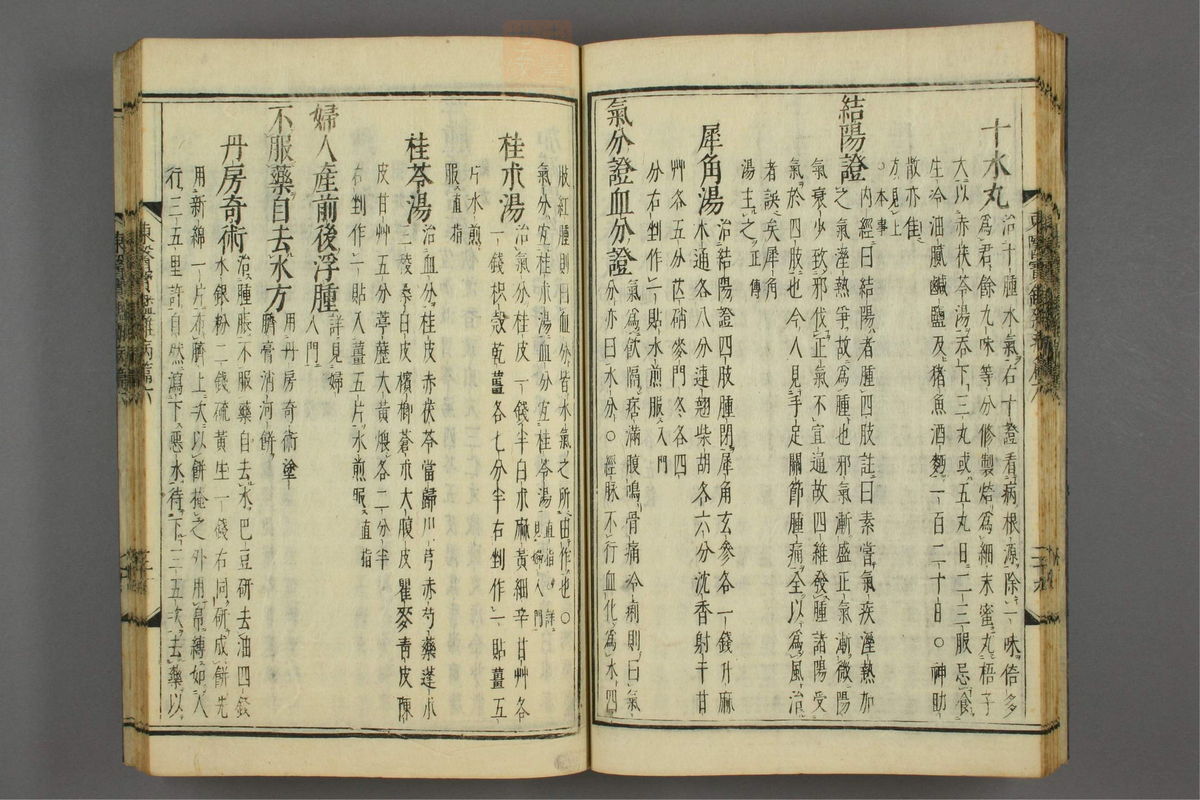 十水丸 治十腫水氣右十證看病根源除一味倍多
爲君餘九味等分修製焙爲細末蜜丸梧子
大以赤茯苓湯呑下三丸或五丸日二三服忌食
生冷油膩鹹鹽及猪魚酒麪一百二十日○神助
散亦佳
方見上
○本事
結陽證 內經曰結陽者腫四肢註曰素當氣疾溼熱加
之氣溼熱爭故爲腫也邪氣漸盛正氣漸微陽
氣衰少致邪伐正氣不宜通故四維發腫諸陽受
氣於四肢也今人見手足關節腫痛全以爲風治
者誤矣犀角
湯主之 正傳
犀角湯 治結陽證四肢腫閉犀角玄參各一錢升麻
木通各八分連翹柴胡各六分沈香射干甘
艸各五分芒硝麥門冬各四
分右剉作一貼水煎服 入門
氣分證血分證 氣爲飮隔痞滿腹鳴骨痛冷痺則曰氣
分亦曰水分○經脉不行血化爲水四
肢紅腫則曰血分皆水氣之所由作也○
氣分宜桂朮湯血分宜桂苓湯 直指 詳見婦人門
桂朮湯 治氣分桂皮一錢半白朮麻黃細辛甘艸各
一錢枳殼乾薑各七分半右剉作一貼薑五
片水煎
服 直指
桂苓湯 治血分桂皮赤茯苓當歸川芎赤芍藥蓬朮
三稜桑白皮檳榔蒼朮大腹皮瞿麥靑皮陳
皮甘艸五分葶藶大黃煨各二分半
右剉作一貼入薑五片水煎服 直指
婦人産前後浮腫 詳見婦
人門
不服藥自去水方 用丹房奇術塗
臍膏消河餠
丹房奇術 治腫脹不服藥自去水巴豆硏去油四錢
水銀粉二錢硫黃生一錢右同硏成餠先
用新綿一片布臍上次以餠掩之外用帛縛如人
行三五里許自然瀉下惡水待下三五次去藥以
東醫寶鑑雜病篇六